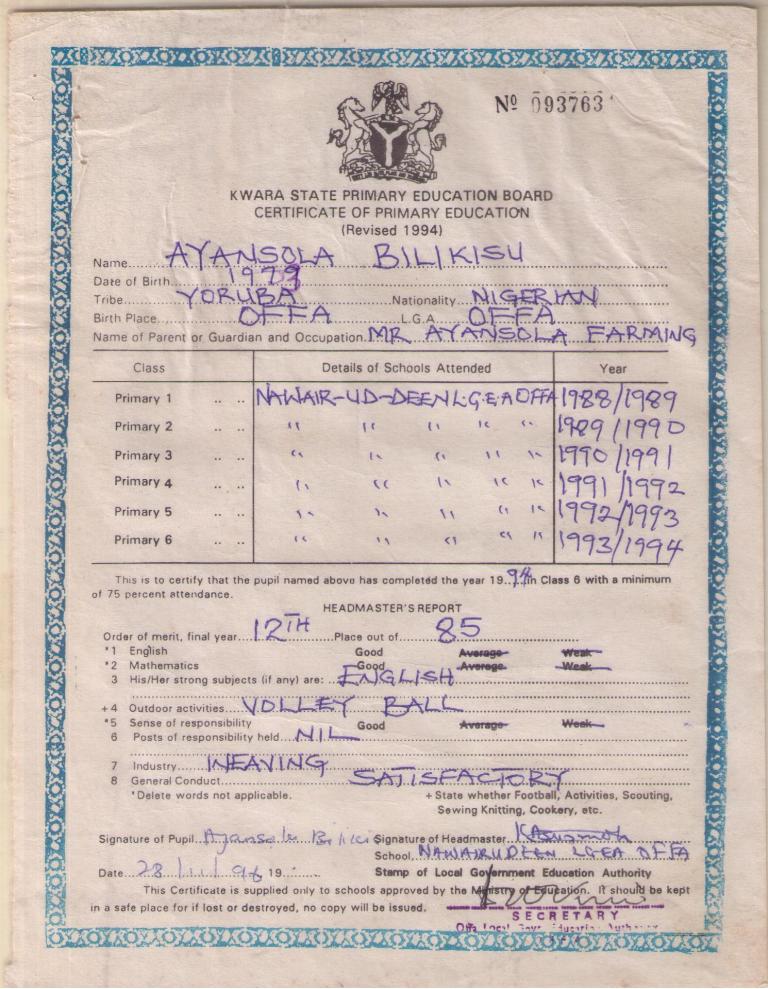 Nº 093763
KWARA STATE PRIMARY EDUCATION BOARD
CERTIFICATE OF PRIMARY EDUCATION
(Revised 1994)
Name AYANSOLA BILIKISU
Date of Birth 1979
Tribe YORUBA Nationality NIGERIAN
Birth Place OFFA L.G.A OFFA
Name of Parent or Guardian and Occupation MR AYANSOLA FARMING
Class Details of Schools Attended Year
Primary 1 .. .. NAWAIR-UD-DEEN L.G.E.A OFFA 1988/1989
Primary 2 .. .. " " " " " 1989/1990
Primary 3 .. .. " " " " " 1990/1991
Primary 4 .. .. " " " " " 1991/1992
Primary 5 .. .. " " " " " 1992/1993
Primary 6 .. .. " " " " " 1993/1994
This is to certify that the pupil named above has completed the year 19..94 in Class 6 with a minimum
of 75 percent attendance.
HEADMASTER'S REPORT
Order of merit, final year 12TH Place out of 85
*1 English Good Average Weak
*2 Mathematics Good Average Weak
3 His/Her strong subjects (if any) are: ENGLISH
+4 Outdoor activities VOLLEY BALL
*5 Sense of responsibility Good Average Weak
6 Posts of responsibility held NIL
7 Industry WEAVING
8 General Conduct SATISFACTORY
*Delete words not applicable. + State whether Football, Activities, Scouting,
Sewing Knitting, Cookery, etc.
Signature of Pupil Ayansola Bilikis Signature of Headmaster
School NAWAIRUDEEN LGEA OFFA
Date 28/11/96 19 Stamp of Local Government Education Authority
This Certificate is supplied only to schools approved by the Ministry of Education. It should be kept
in a safe place for if lost or destroyed, no copy will be issued.
SECRETARY
Offa Local Govt. Education Authority